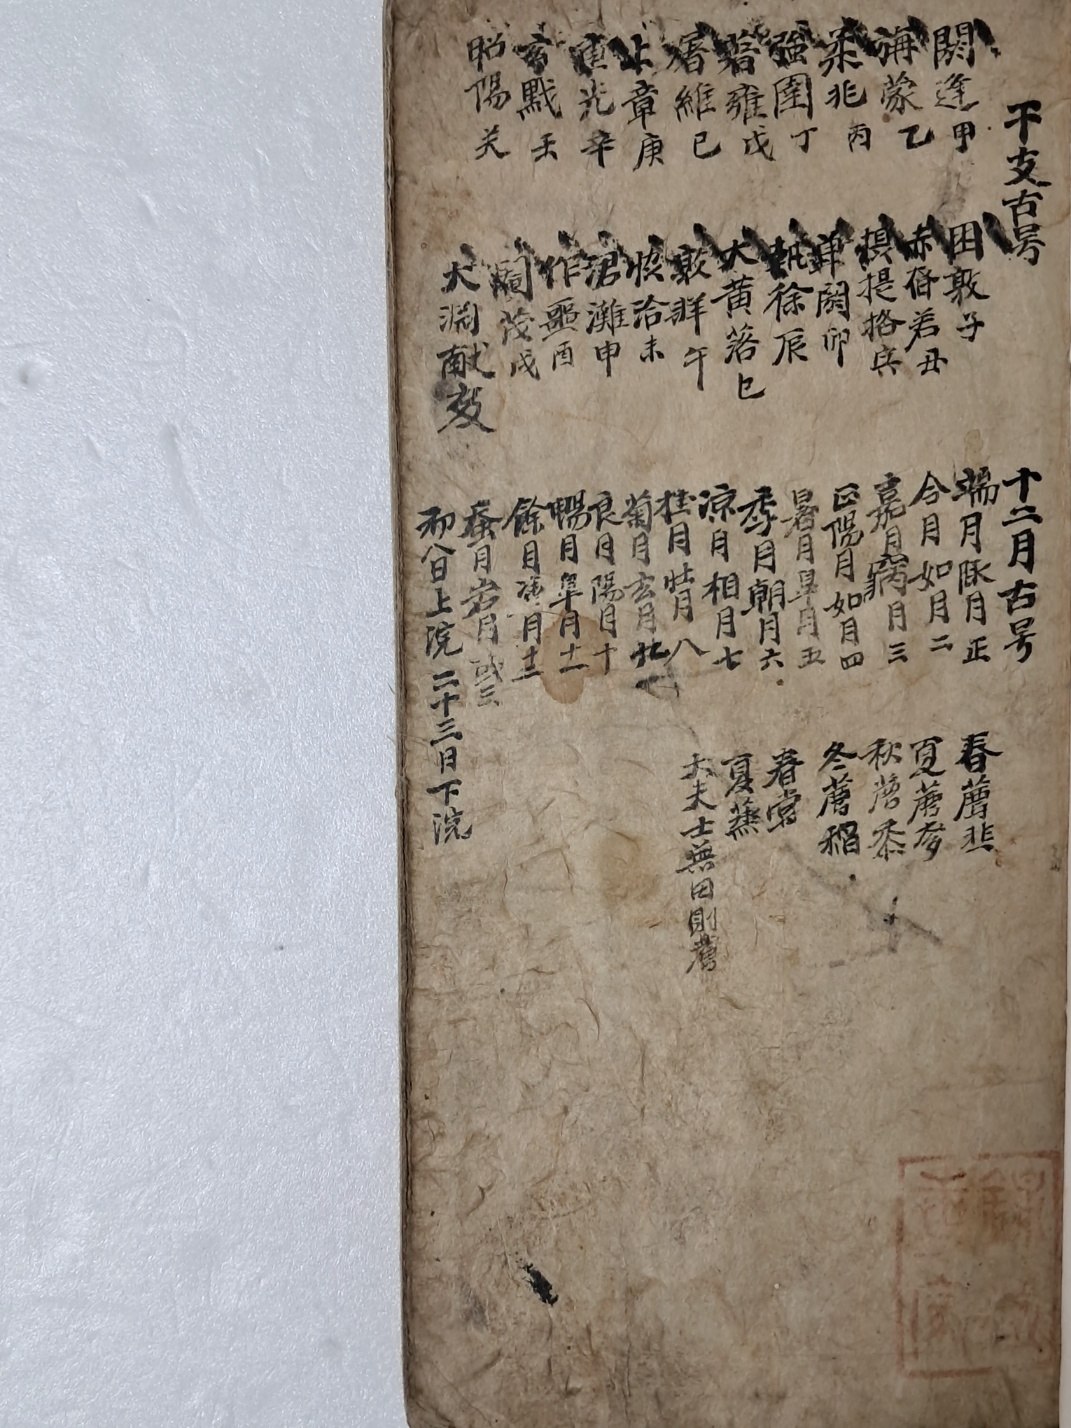 干支古号
閼逢 甲
旃蒙 乙
柔兆 丙
強圉 丁
著雍 戊
屠維 己
上章 庚
重光 辛
玄黓 壬
昭陽 癸
困敦 子
赤奮若 丑
摂提格 寅
單閼 卯
執徐 辰
大黄落 巳
敦牂 午
協洽 未
涒灘 申
作噩 酉
閹茂 戌
大淵献 亥
十二月古号
端月陬月 正
令月如月 二
嘉月窝月 三
正陽月如月 四
暑月皐月 五
季月朝月 六
涼月相月 七
桂月壮月 八
菊月玄月 九
良月陽月 十
暢月辜月 十一
餘月 月 十二
蚕月 月
初八日上浣 二十三日下浣
春薦韭
夏薦麥
秋薦黍
冬薦稲
春
夏
大夫士無田則薦